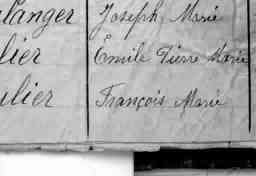 ulanger Joseph Marie
lier Émile Pierre Marie
ulier François Marie